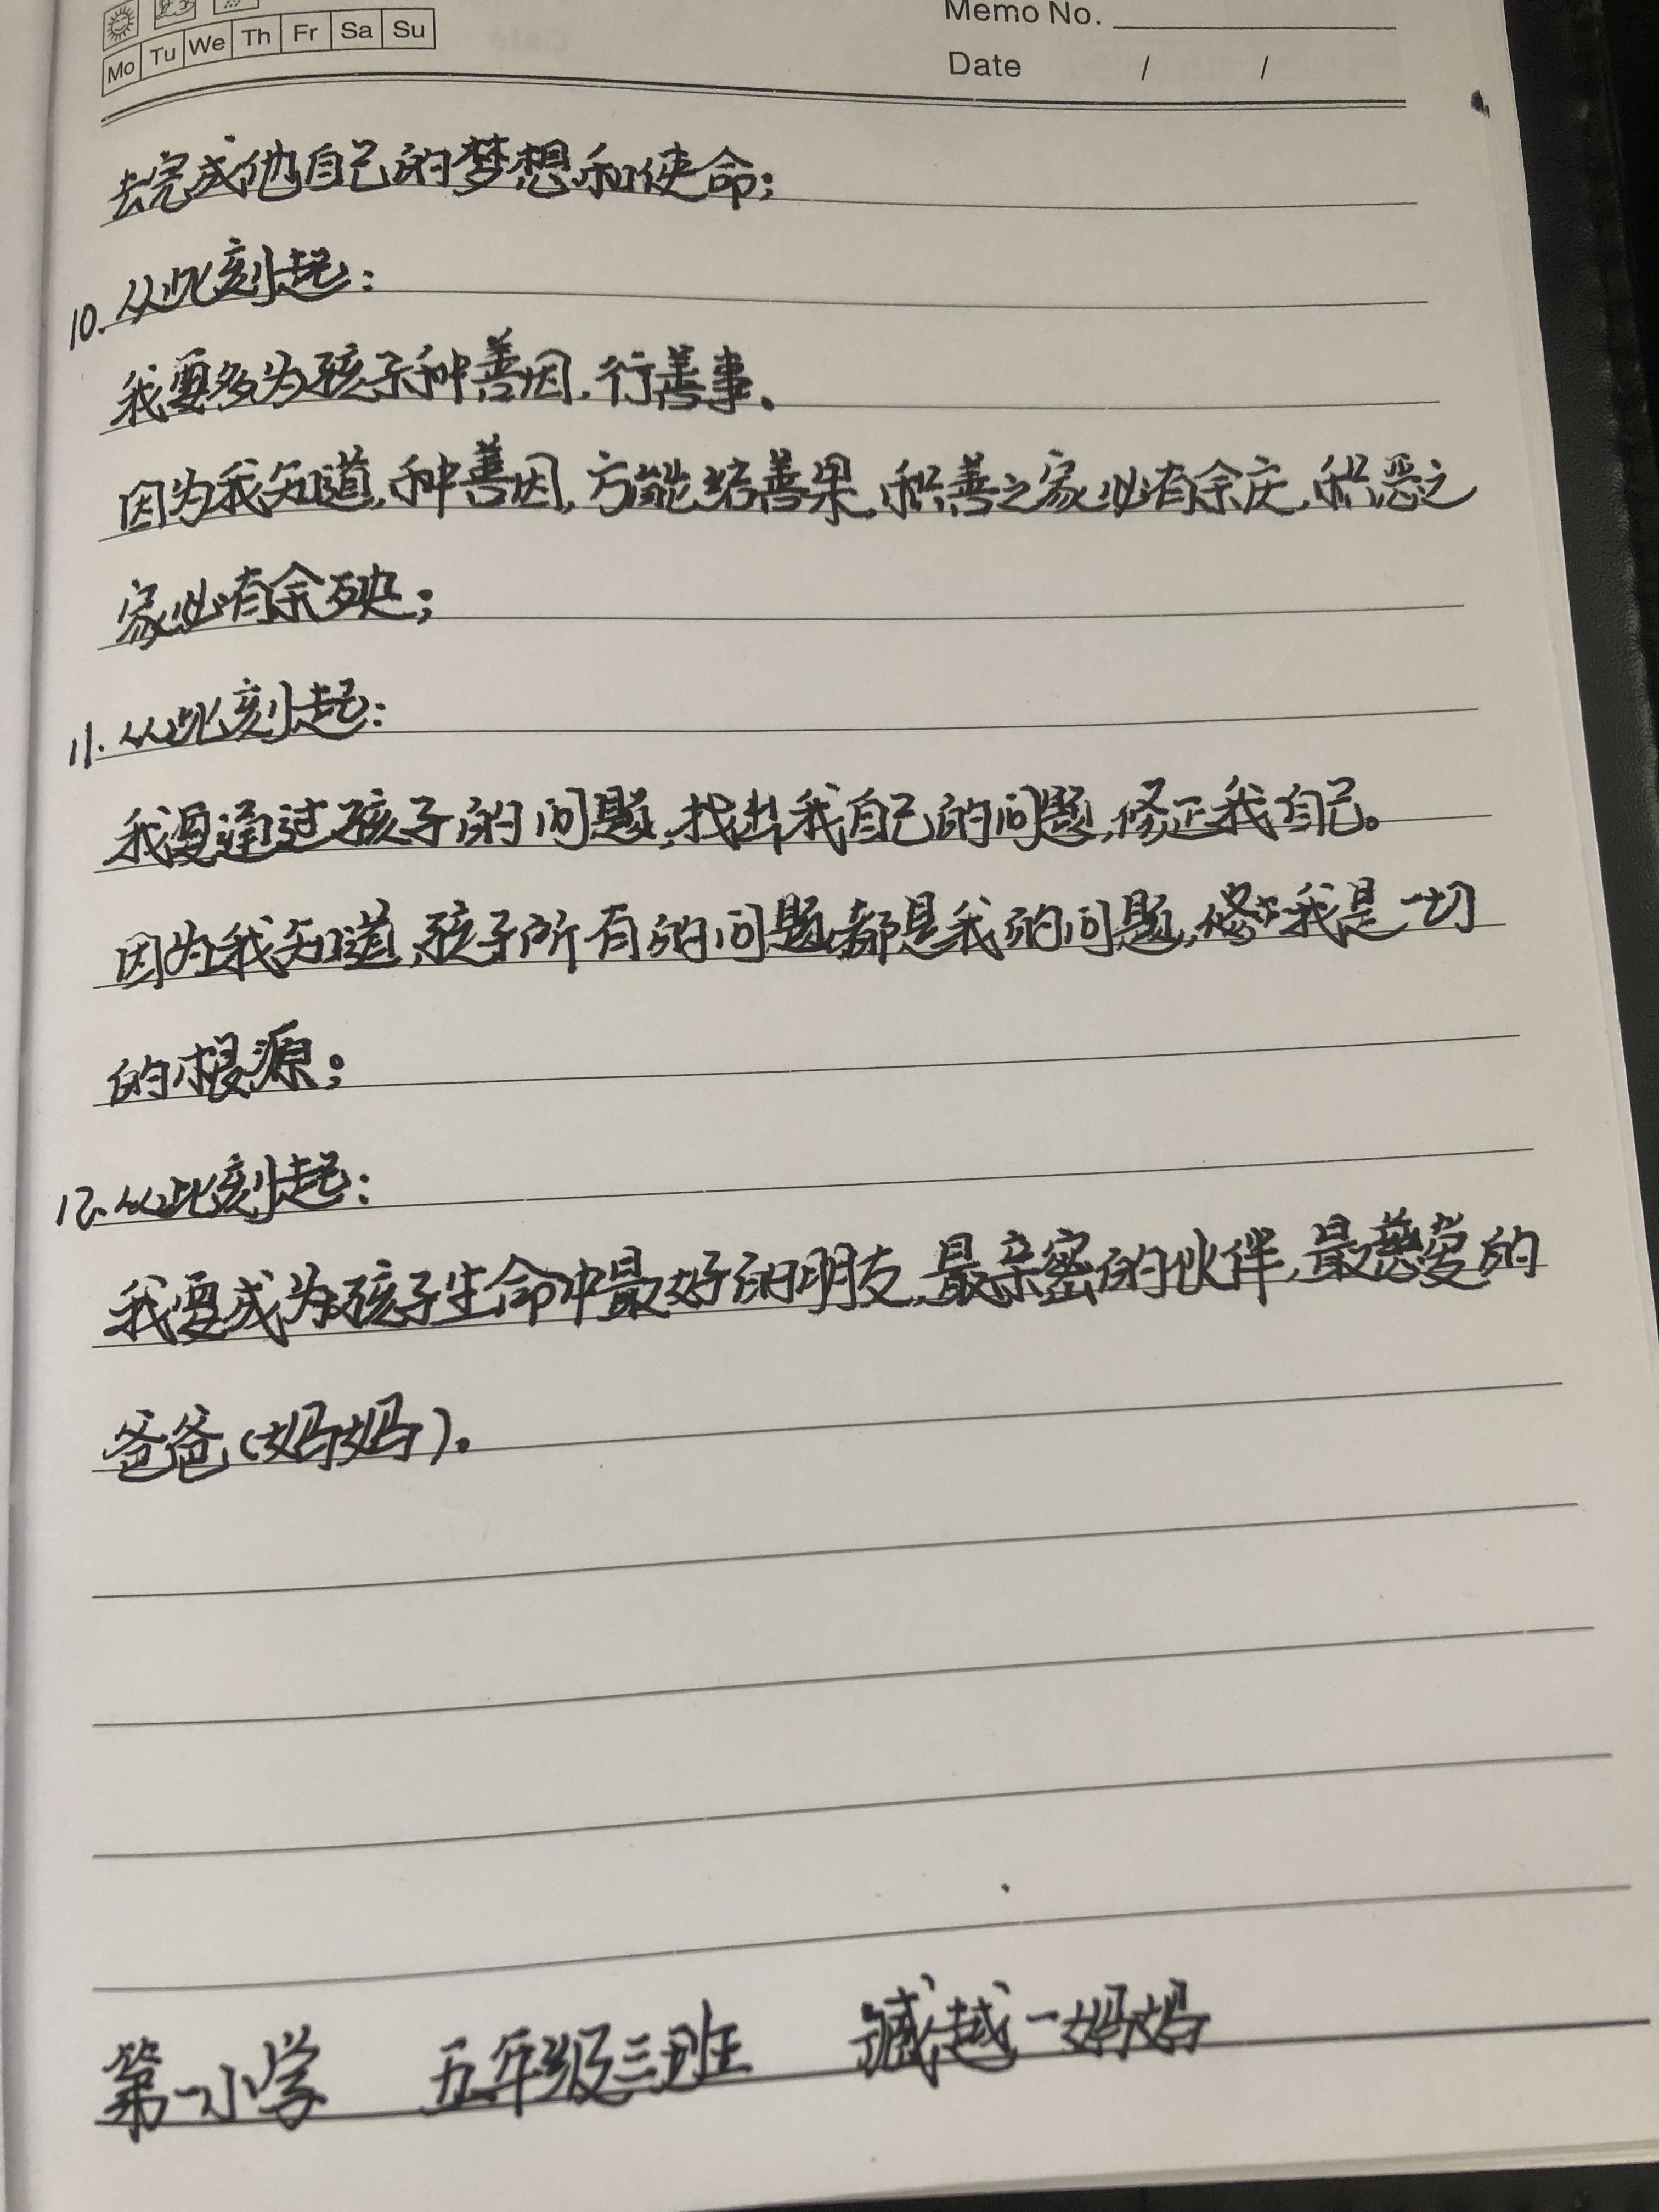 Memo No.
Mo Tu We Th Fr Sa Su
Date / /
去完成他自己的梦想和使命;
10. 从此刻起:
我要多为孩子种善因,行善事、
因为我知道,种善因,方能结善果,积善之家必有余庆,积恶之
家必有余殃;
11. 从此刻起:
我要通过孩子的问题,找出我自己的问题,修正我自己。
因为我知道,孩子所有的问题都是我的问题,修正我是一切
的根源;
12. 从此刻起:
我要成为孩子生命中最好的朋友,最亲密的伙伴,最慈爱的
爸爸(妈妈)。
第一小学 五年级三班 臧越一妈妈